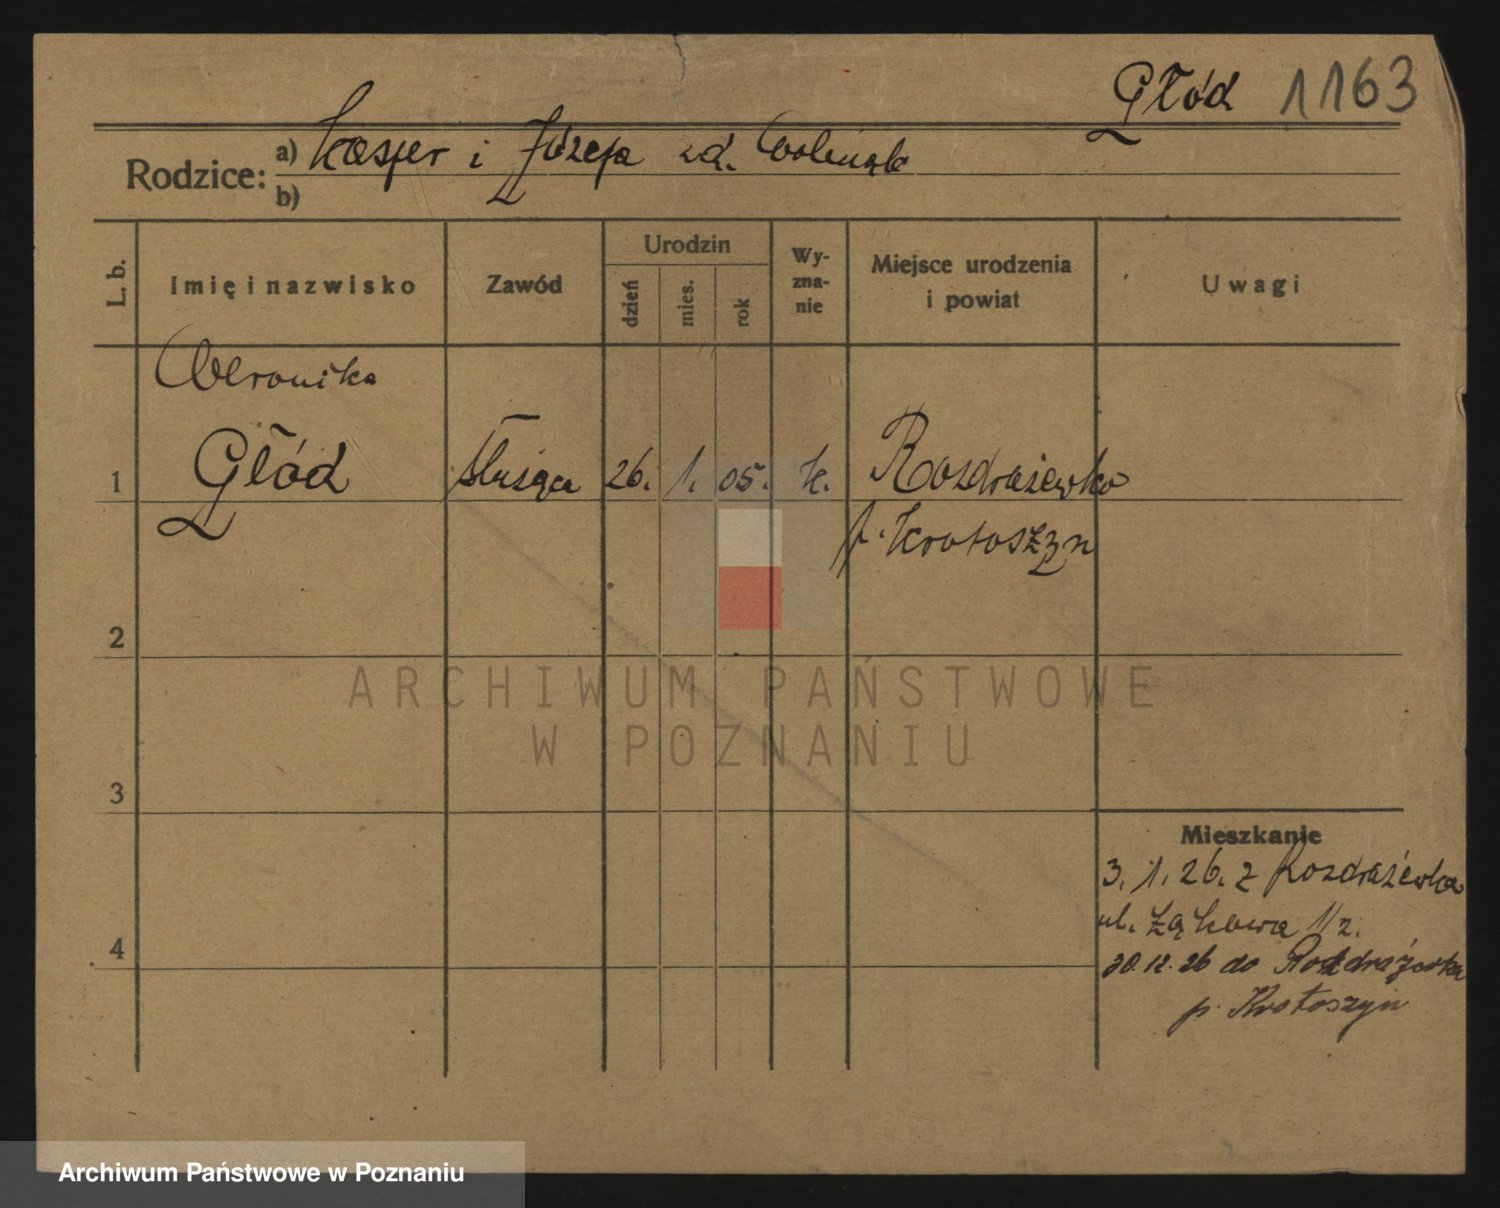 Głód 1163
Rodzice: a) Kasper i Józefa zd. Woleniak
b)
L. b. Imię i nazwisko Zawód Urodzin dzień mies. rok Wyznanie Miejsce urodzenia i powiat Uwagi
Weronika
1 Głód służąca 26. 1. 05. k. Rozdrażewko
p. Krotoszyn
2
ARCHIWUM PAŃSTWOWE
W POZNANIU
3
Mieszkanie
3. 1. 26. z Rozdrażewka
ul. Łąkowa 11
4
30.12.26 do Rozdrażewka
p. Krotoszyn
Archiwum Państwowe w Poznaniu